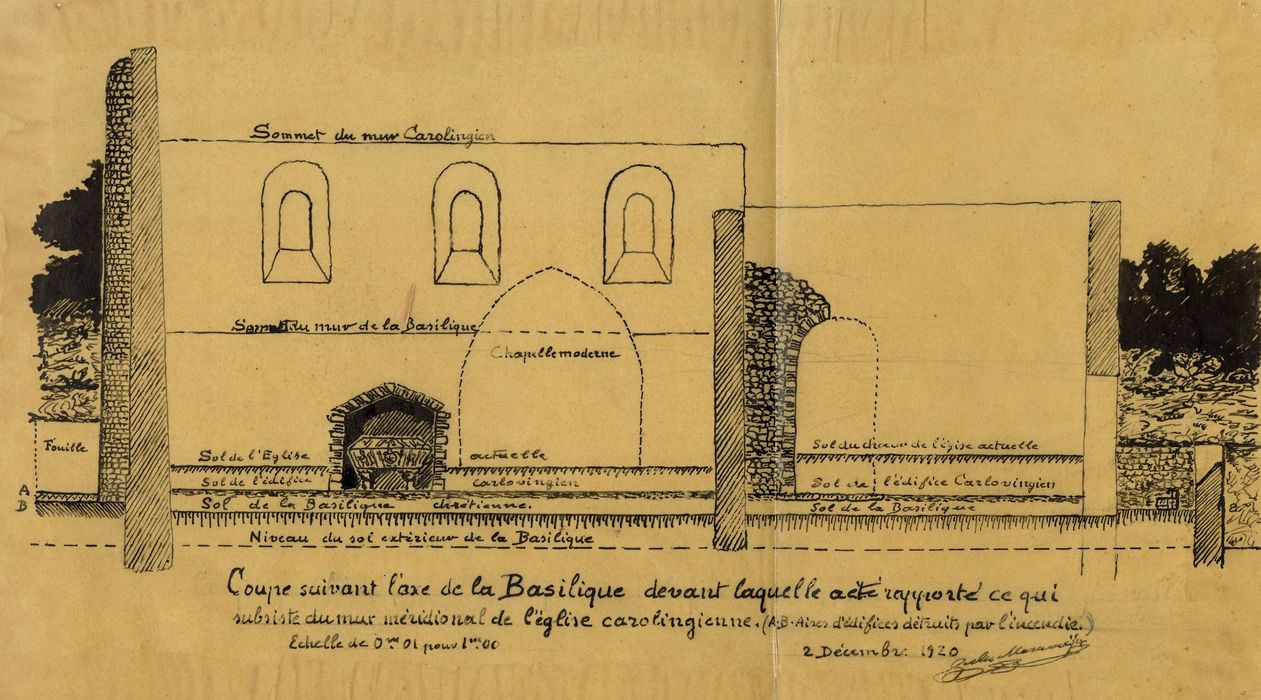 Sommet du mur Carolingien
Sommet du mur de la Basilique
Chapelle moderne
Fouille
Sol de l'Eglise actuelle
Sol de l'édifice carlovingien
Sol de la Basilique chrétienne.
A
B
Niveau du sol extérieur de la Basilique
Sol du chœur de l'égise actuelle
Sol de l'édifice Carlovingien
Sol de la Basilique
Coupe suivant l'axe de la Basilique devant laquelle a été rapporté ce qui
subsiste du mur méridional de l'église carolingienne. (A.B. Aires d'édifices détruits par l'incendie.)
Echelle de 0m01 pour 1m00
2 Décembre 1920
Jules